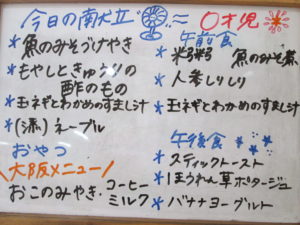 今日の献立
*魚のみそづけやき
*もやしときゅうりの
酢のもの
*玉ネギとわかめのすまし汁
*(添)ネーブル
おやつ
\大阪メニュー/
おこのみやき・コーヒーミルク
0才児
午前食
*粥 魚のみそ煮
*人参しりしり
*玉ネギとわかめのすまし汁
午後食
*スティックトースト
*ほうれん草ポタージュ
*バナナヨーグルト